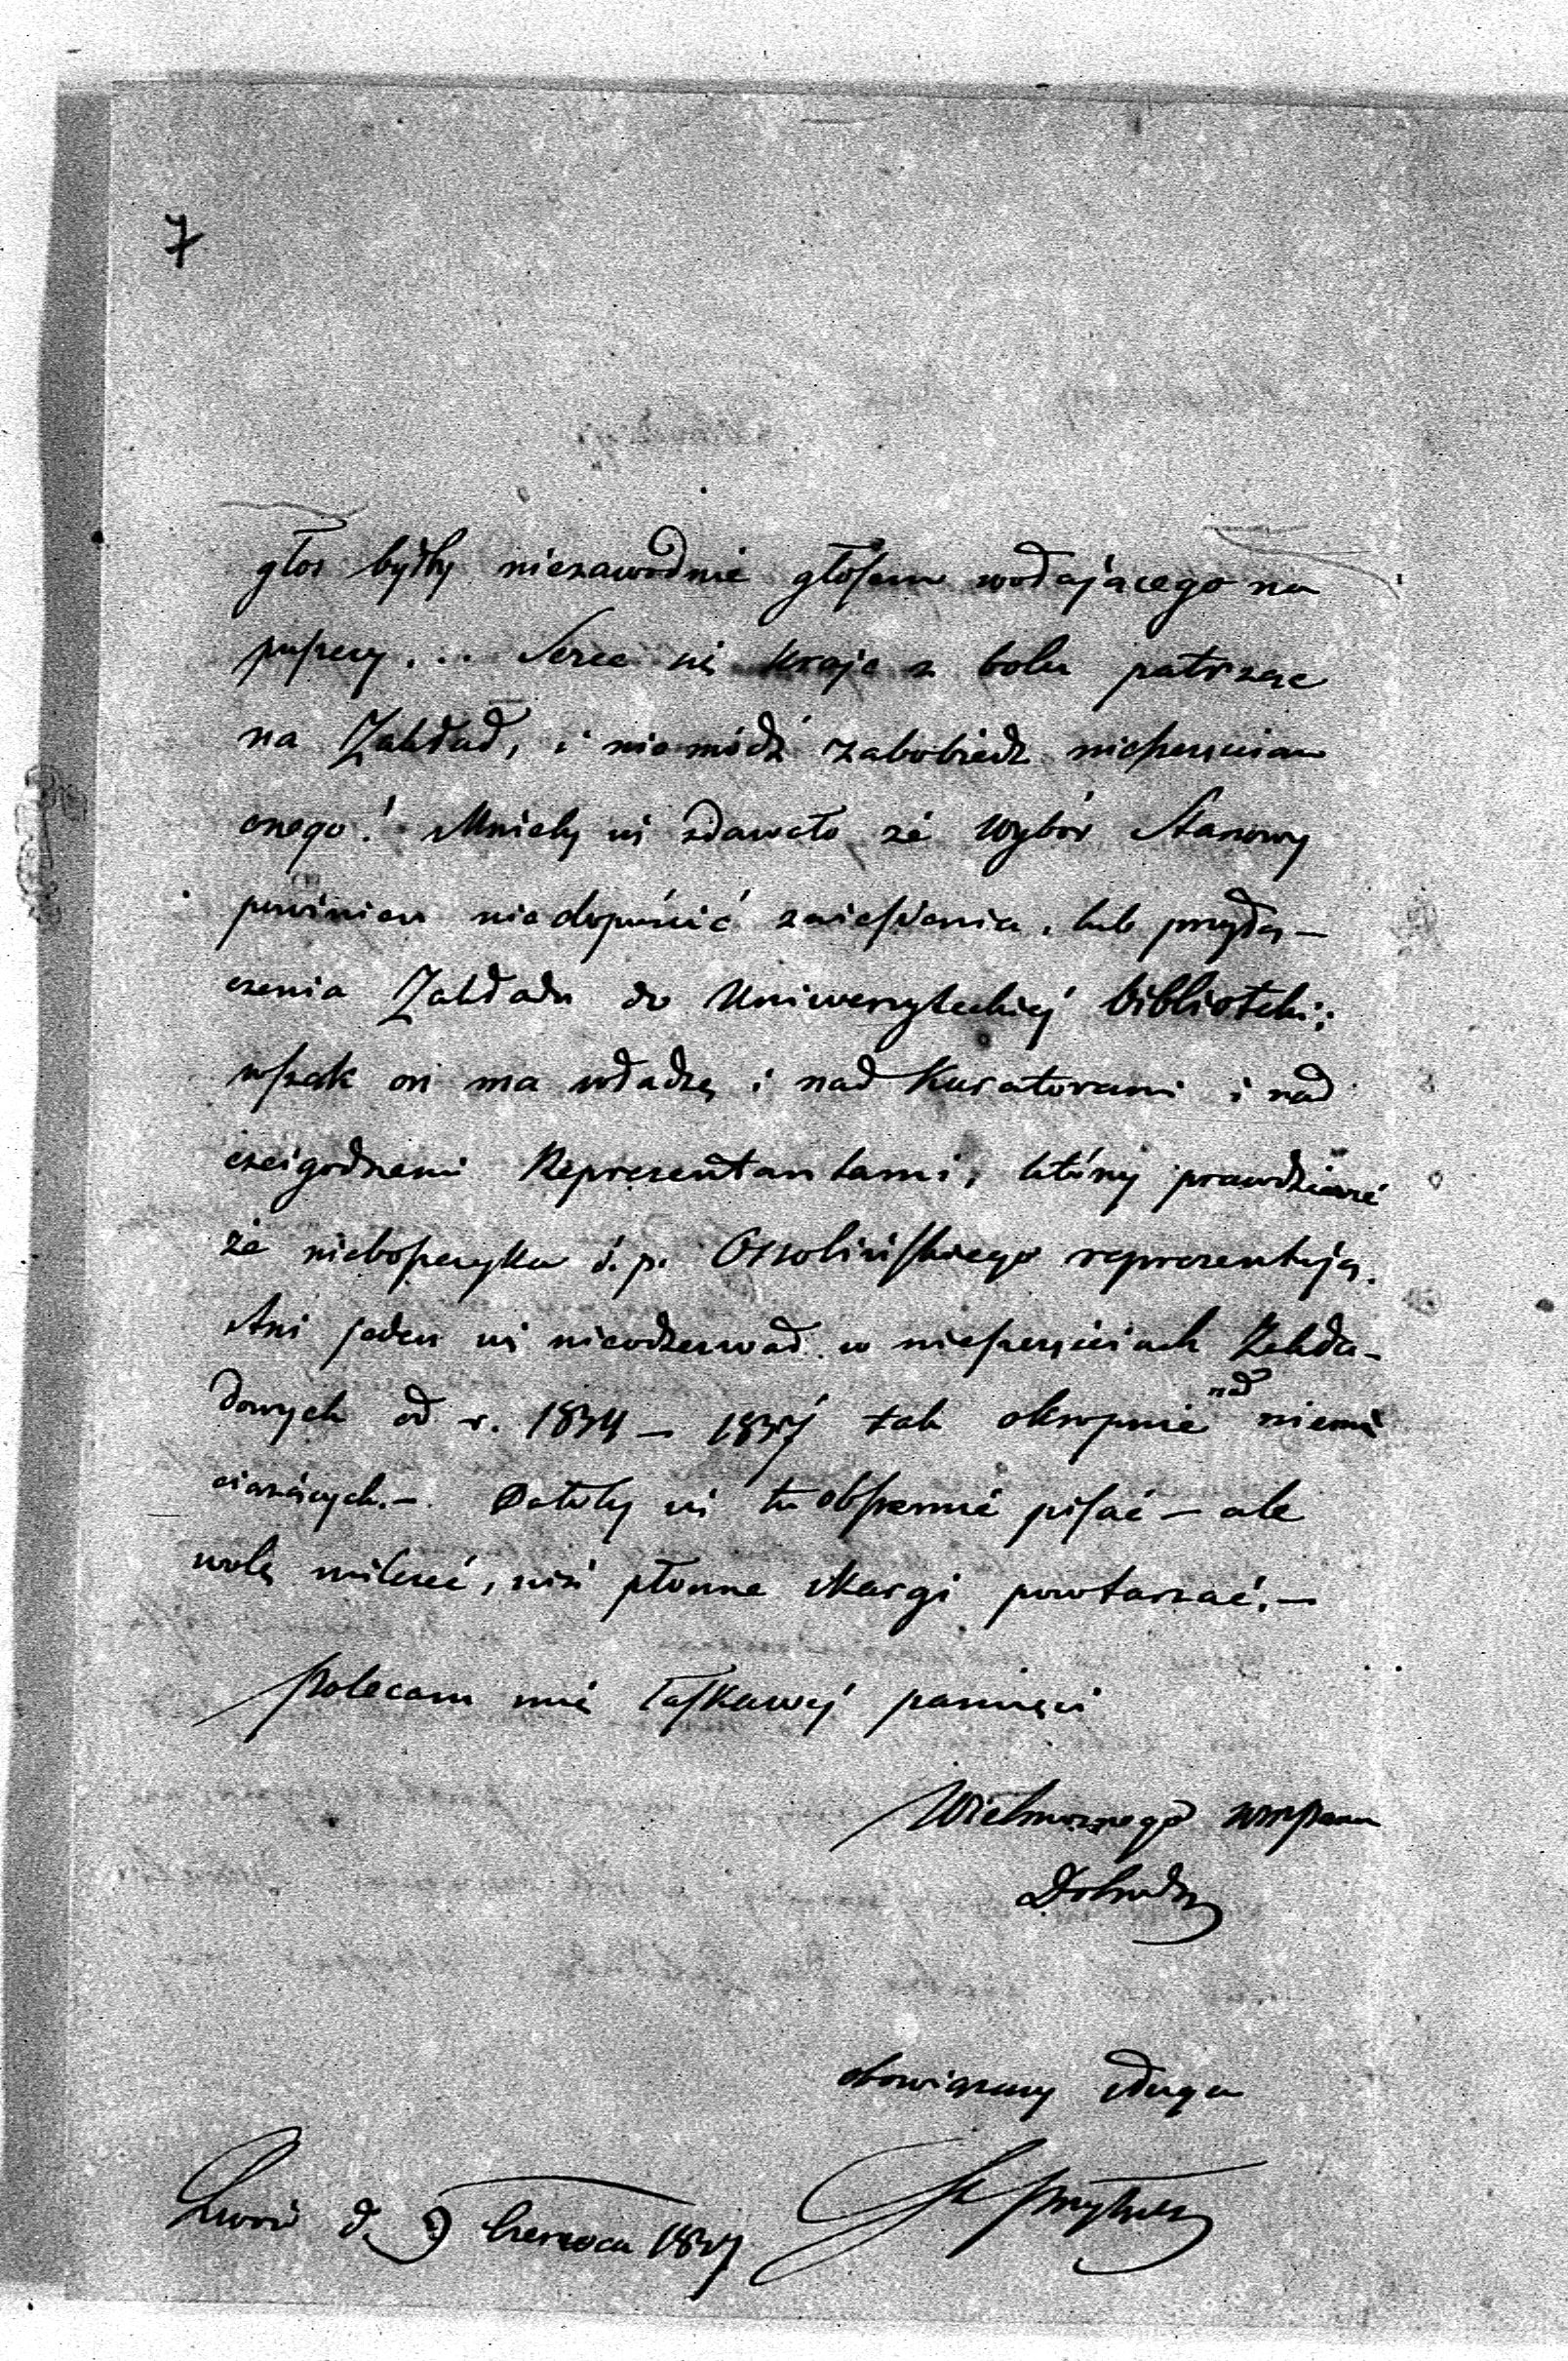 7
głos byłby niezawodnie głosem wołającego na
puszczy... Serce się kraje z bolu patrząc
na Zakład, i niemódz zabobiedz nieszczęściom
onego! Mnieby się zdawało że Wybór Stanowy
powinien niedopuścić zniesienia, lub przyłą-
czenia Zakładu do Uniwersyteckiej biblioteki;
wszak on ma władzę i nad Kuratorami i nad
czcigodnemi Reprezentantami, którzy prawdziwie
że nieboszczyka ś. p. Ossolińskiego reprezentują.
Ani jeden się nieodezwał w nieszczęściach Zakła-
dowych od r. 1834 – 1837 tak okropnie nad niemi
ciążących. – Dałoby się tu obszernie pisać – ale
wolę milczeć, niż płonne skargi powtarzać. –
Polecam mię łaskawej pamięci
Wielmożnego
Dobrodz
obowiązany sługa
Lwów d. 9 Czerwca 1837